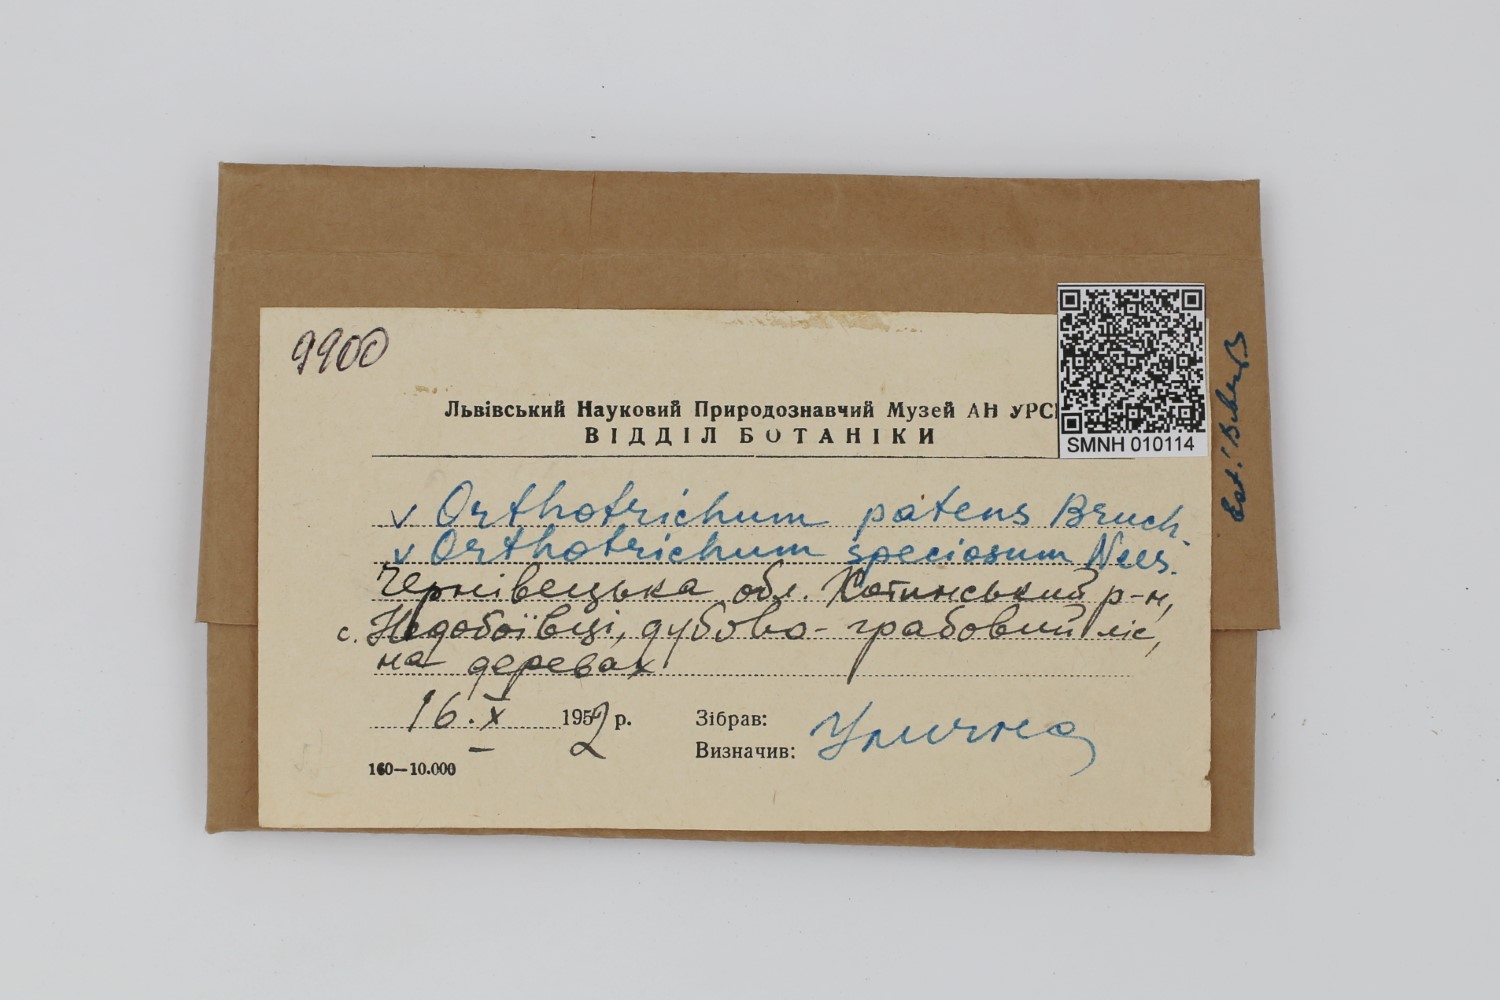 9900
Львівський Науковий Природознавчий Музей АН УРС
ВІДДІЛ БОТАНІКИ
SMNH 010114
v Orthotrichum patens Bruch.
v Orthotrichum speciosum Nees.
Чернівецька обл. Хотинський р-н,
с. Недобоївці, дубово-грабовий ліс,
на деревах
16.X 1952 р.
Зібрав:
Визначив: Улична
160—10.000
Est.